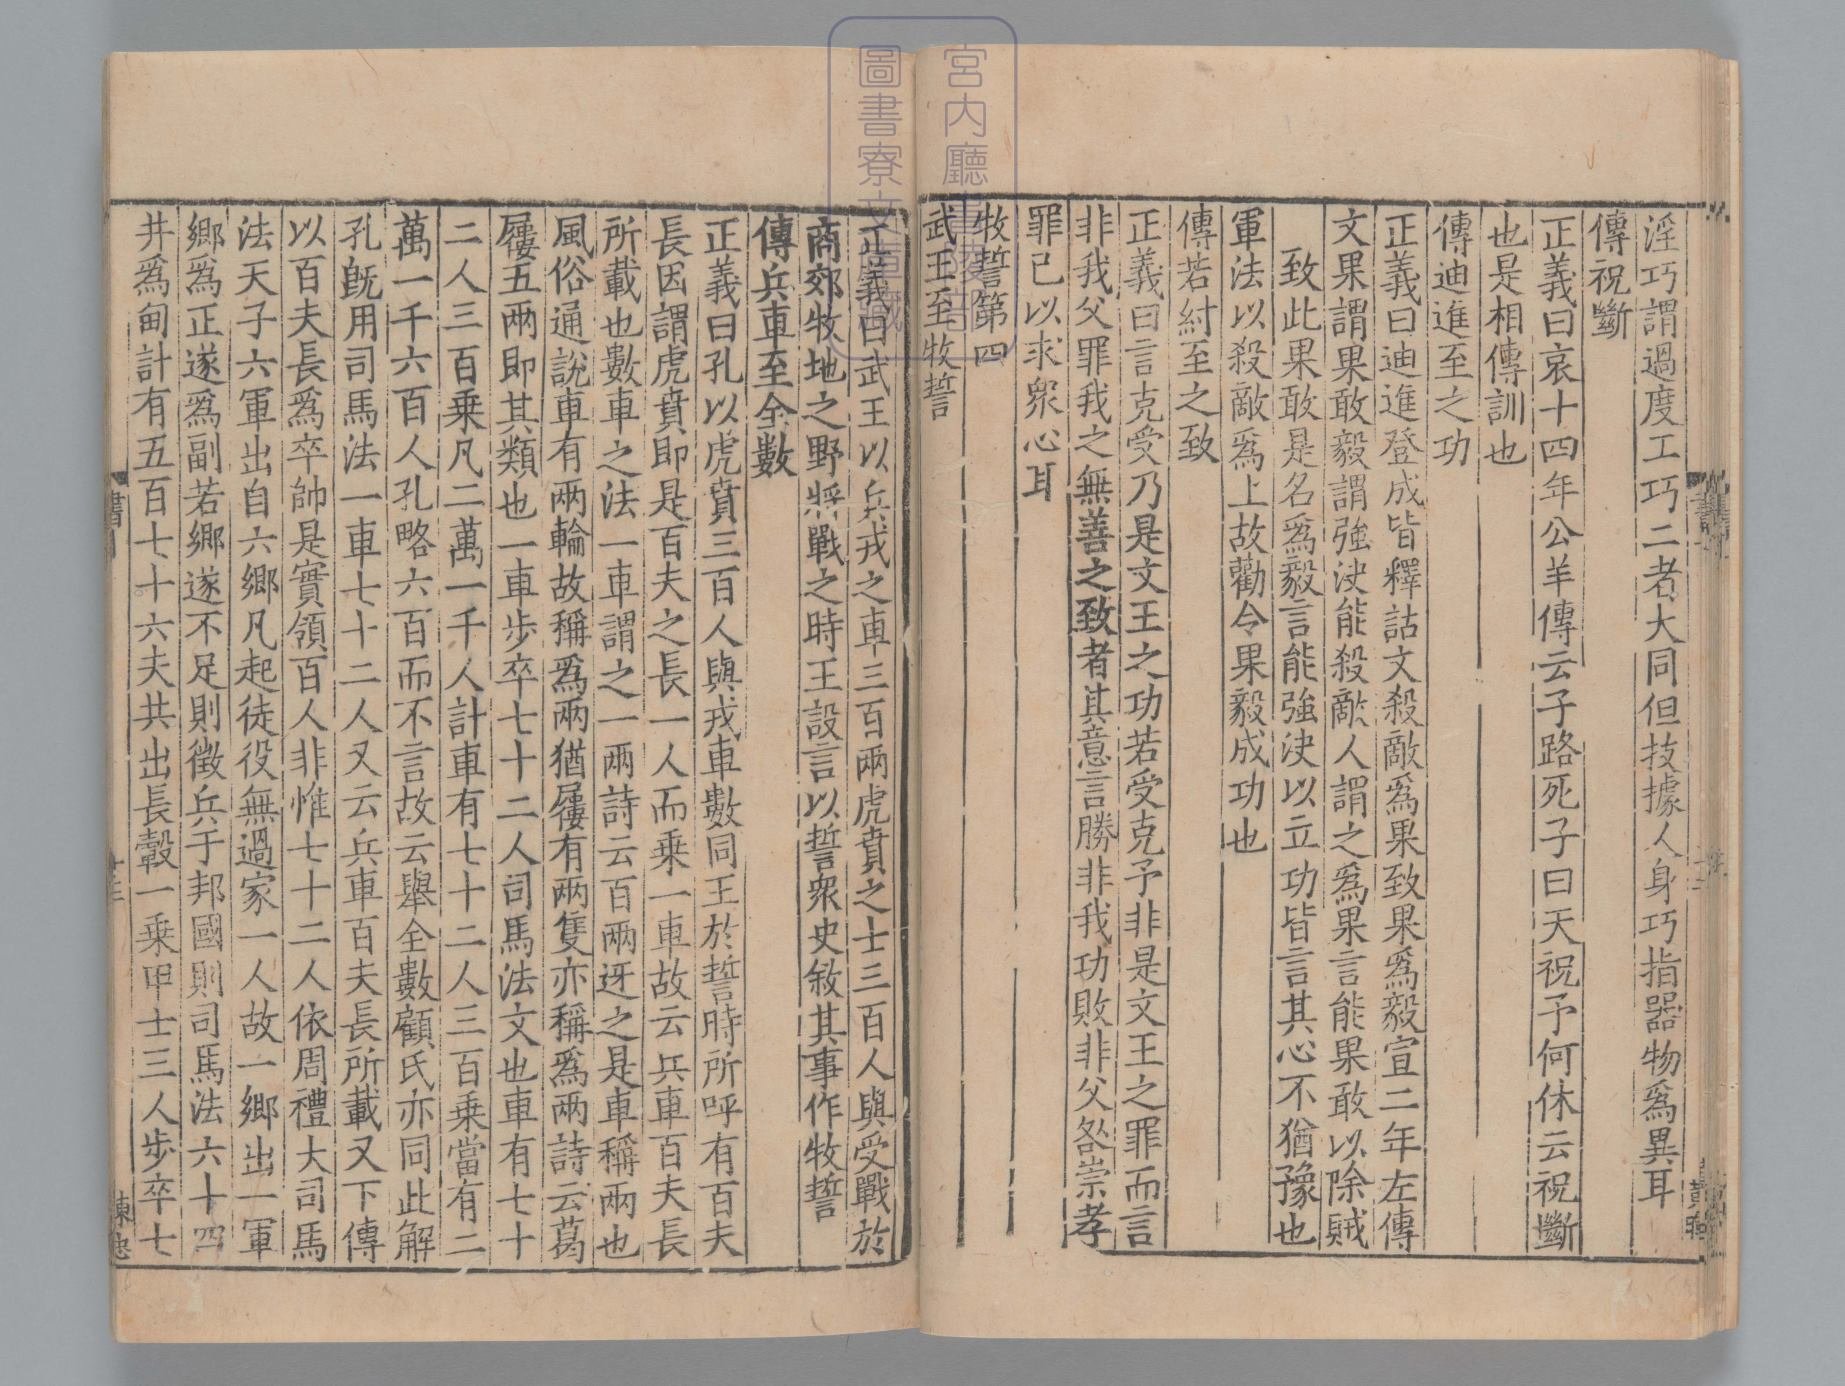 淫巧謂過度工巧二者大同但技據人身巧指器物爲異耳
傳祝斷
正義曰哀十四年公羊傳云子路死子曰天祝予何休云祝斷
也是相傳訓也
傳迪進至之功
正義曰迪進登成皆釋詁文殺敵爲果致果爲毅宣二年左傳
文果謂果敢毅謂強決能殺敵人謂之爲果言能果敢以除賊
致此果敢是名爲毅言能強決以立功皆言其心不猶豫也
軍法以殺敵爲上故勸令果毅成功也
傳若紂至之致
正義曰言克受乃是文王之功若受克予非是文王之罪而言
非我父罪我之無善之致者其意言勝非我功敗非父咎崇孝
罪己以求衆心耳
牧誓第四
武王至牧誓
正義曰武王以兵戎之車三百兩虎賁之士三百人與受戰於
商郊牧地之野將戰之時王設言以誓衆史敘其事作牧誓
傳兵車至全數
正義曰孔以虎賁三百人與戎車數同王於誓時所呼有百夫
長因謂虎賁即是百夫之長一人而乗一車故云兵車百夫長
所載也數車之法一車謂之一兩詩云百兩迓之是車稱兩也
風俗通說車有兩輪故稱爲兩猶屨有兩隻亦稱爲兩詩云葛
屨五兩即其類也一車步卒七十二人司馬法文也車有七十
二人三百乗凡二萬一千人計車有七十二人三百乗當有二
萬一千六百人孔略六百而不言故云舉全數顧氏亦同此解
孔旣用司馬法一車七十二人又云兵車百夫長所載又下傳
以百夫長爲卒帥是實領百人非惟七十二人依周禮大司馬
法天子六軍出自六鄉凡起徒役無過家一人故一鄉出一軍
鄉爲正遂爲副若鄉遂不足則徵兵于邦國則司馬法六十四
井爲甸計有五百七十六夫共出長轂一乗甲士三人步卒七
宮内廳
圖書寮文庫